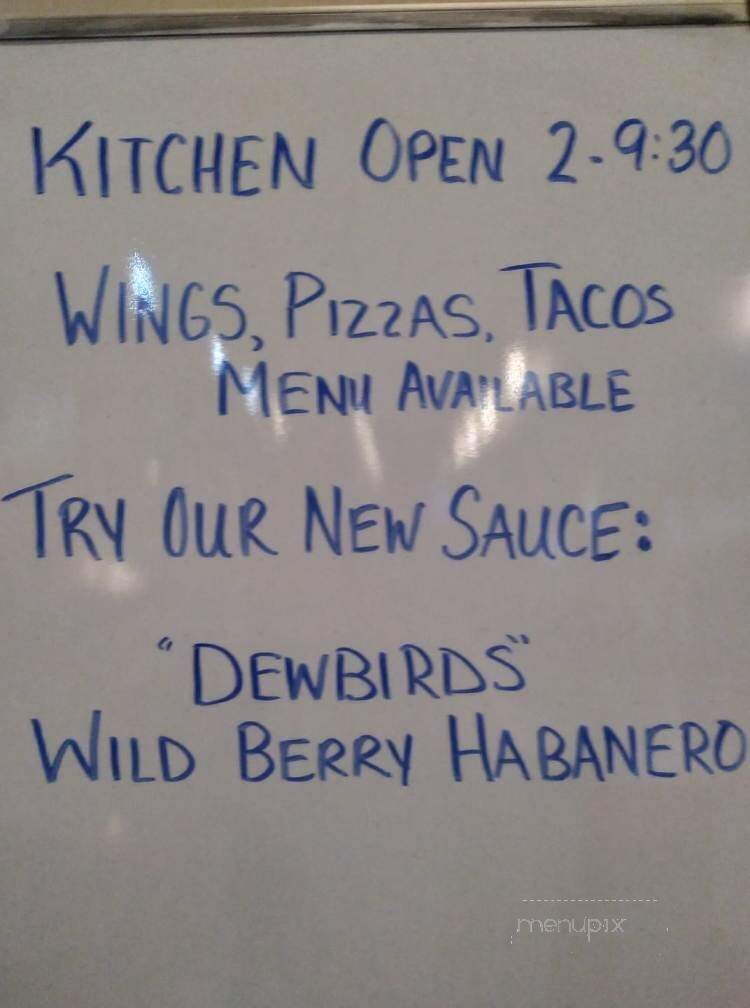 KITCHEN OPEN 2-9:30
WINGS, PIZZAS, TACOS
MENU AVAILABLE
TRY OUR NEW SAUCE:
"DEWBIRDS"
WILD BERRY HABANERO
menupix